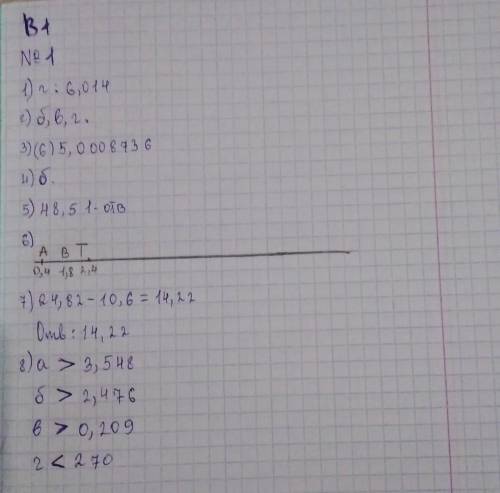 В1
№1
1) г. 6,014
2) б, в, г.
3) (6) 5,0008736
4) б.
5) 48,51 - отв
6)
А В Т
0,4 1,8 2,4
7) 24,82 - 10,6 = 14,22
Отв: 14,22
8) а > 3,548
б > 2,476
в > 0,209
г < 270